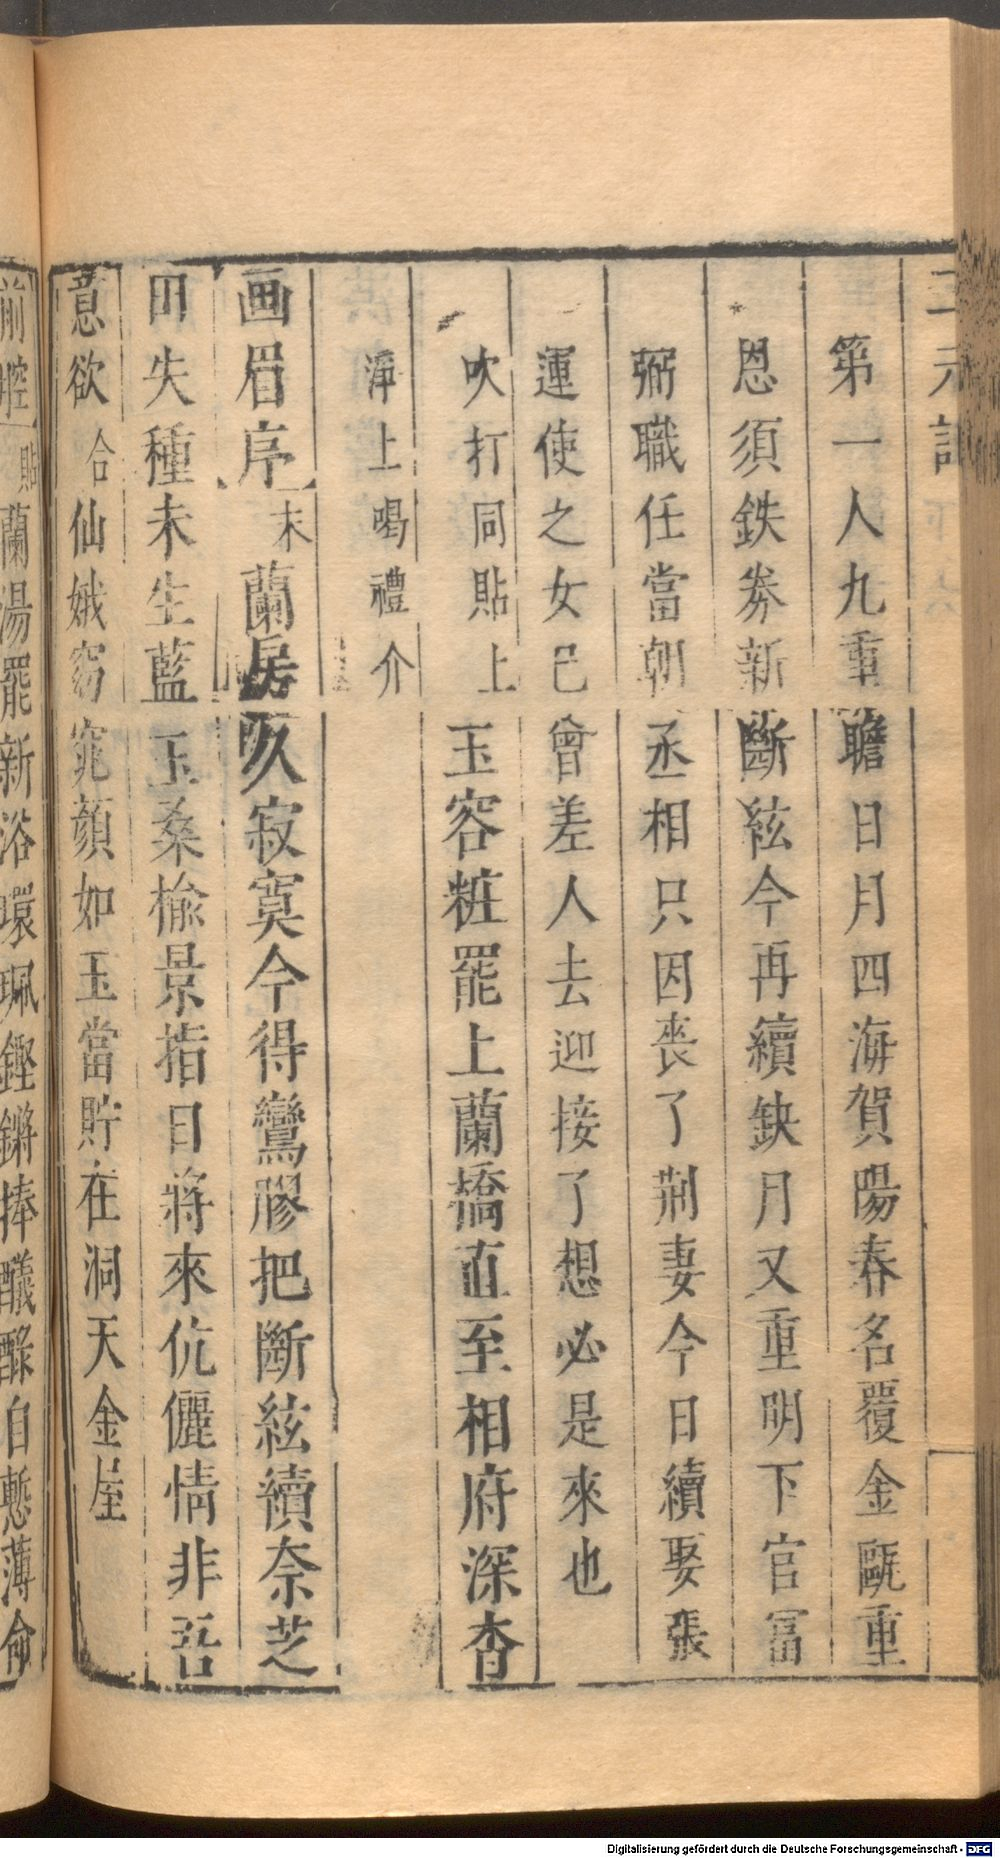 三元記
第一人九重瞻日月四海賀陽春名覆金甌重
恩須鉄券新斷絃今再續缺月又重明下官冨
弼職任當朝丞相只因丧了荆妻今日續娶張
運使之女已曾差人去迎接了想必是來也
吹打同貼上玉容粧罷上蘭橋直至相府深杳
淨上喝禮介
画眉序末蘭房久寂寞今得鸞膠把斷絃續奈芝
田失種未生藍玉桑榆景指日將來伉儷情非吾
意欲合仙娥窈窕顔如玉當貯在洞天金屋
前腔貼蘭湯罷新浴環珮鏗鏘捧醆醁自慙薄命
Digitalisierung gefördert durch die Deutsche Forschungsgemeinschaft - DFG